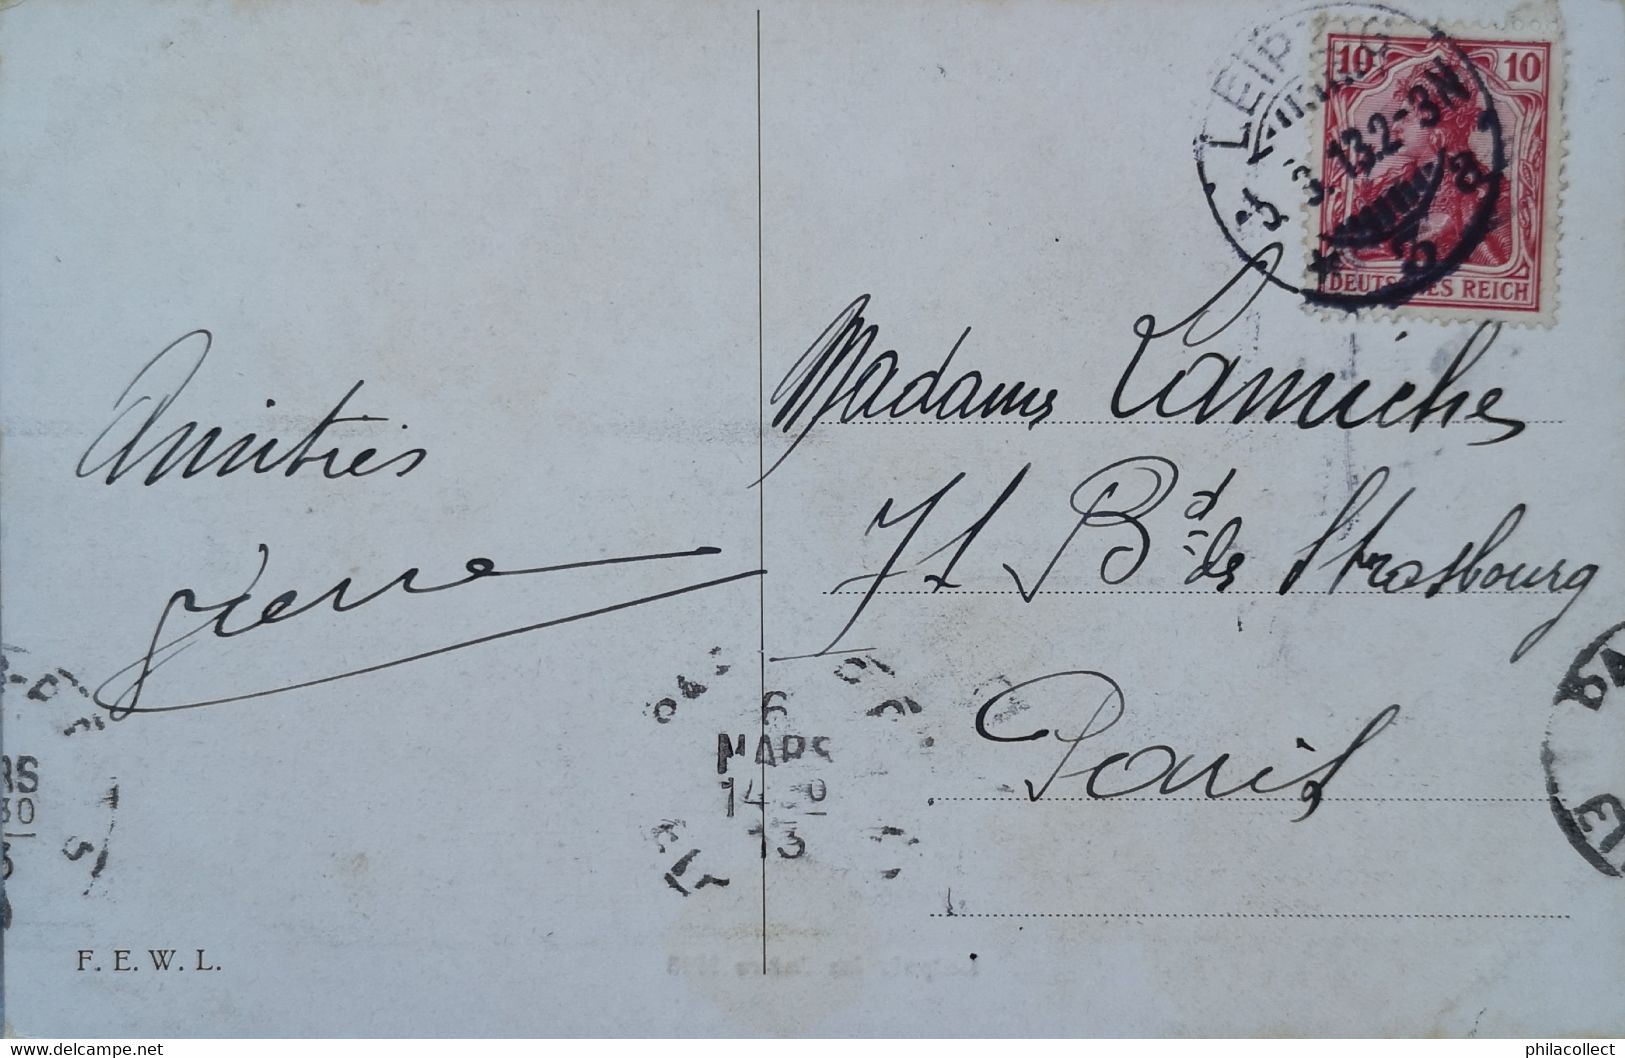 10 10
LEIPZIG
5. 3. 13. 2-3N
* 8 a
DEUTSCHES REICH
Madame Lamiche
71 Bd de Strasbourg
Paris
Amitiés
Pierre
6
MARS
14 30
13
RS
30
F. E. W. L.
https://www.delcampe.net
philacollect